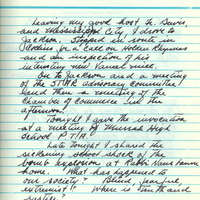 Leaving my good host Dr. Davis,
and Mississippi City, I drove to
Jackson. Stopped en route in
for a call on Hollen Rhymes
and an inspection of his
interesting new Vancel mill.
On to Jackson and a meeting
of the STAR advisory committee!
and then a meeting of the
Chamber of Commerce in the
afternoon.
Tonight I gave the invocation
at a meeting of Murrah High
School P.T.A!
Late tonight I shared the
sickening school shock of the
bomb explosion at Rabbi Nussbaum
home. What has happened to
our society? Blind, fearful
extremist! Where is truth and
justice?